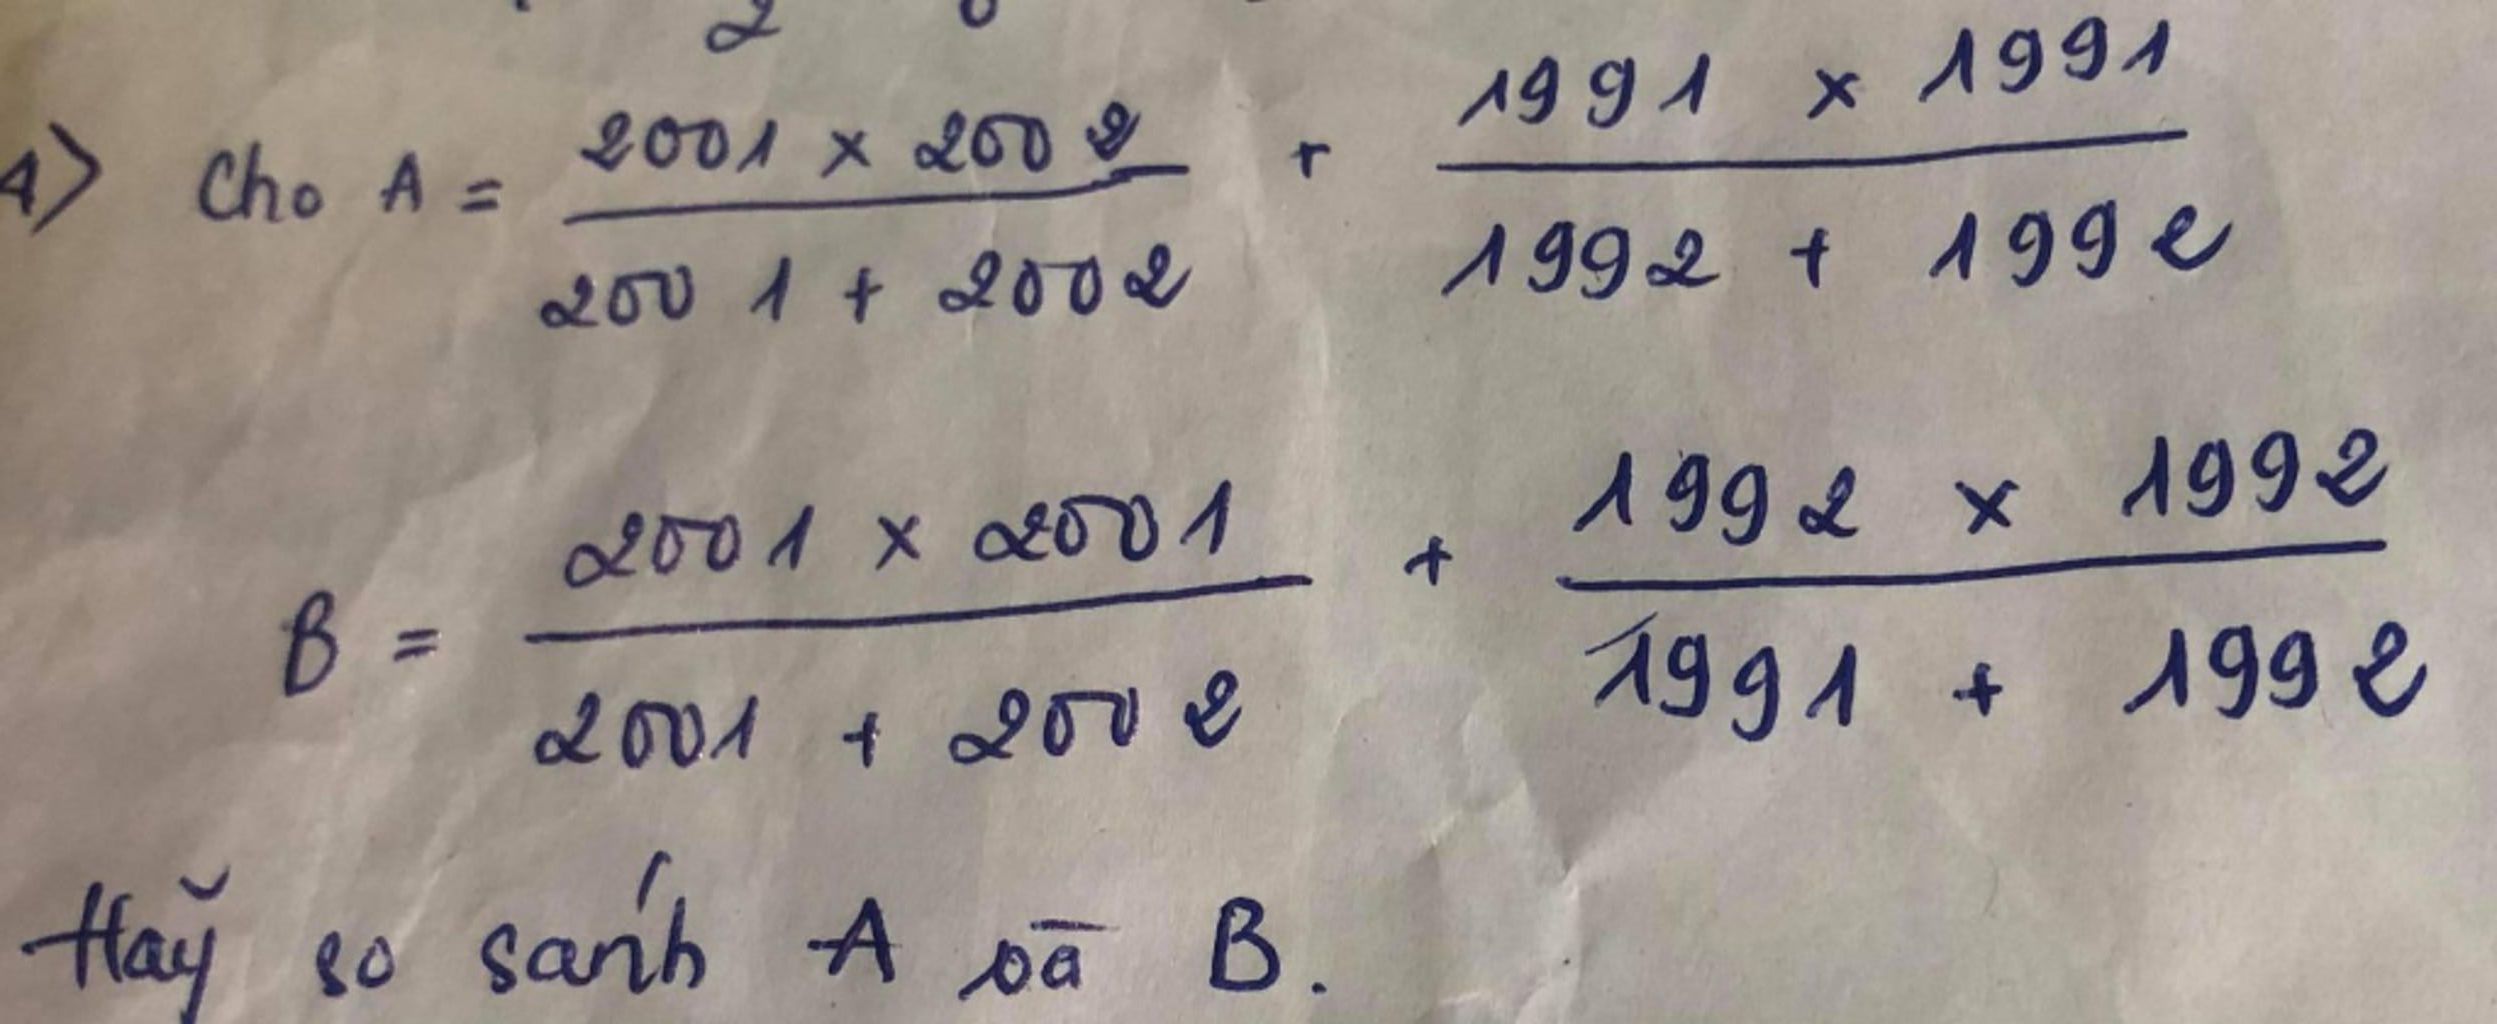 4) Cho A = \frac{2001 × 2002}{2001 + 2002} + \frac{1991 × 1991}{1992 + 1992}
B = \frac{2001 × 2001}{2001 + 2002} + \frac{1992 × 1992}{1991 + 1992}
Hãy so sánh A và B.